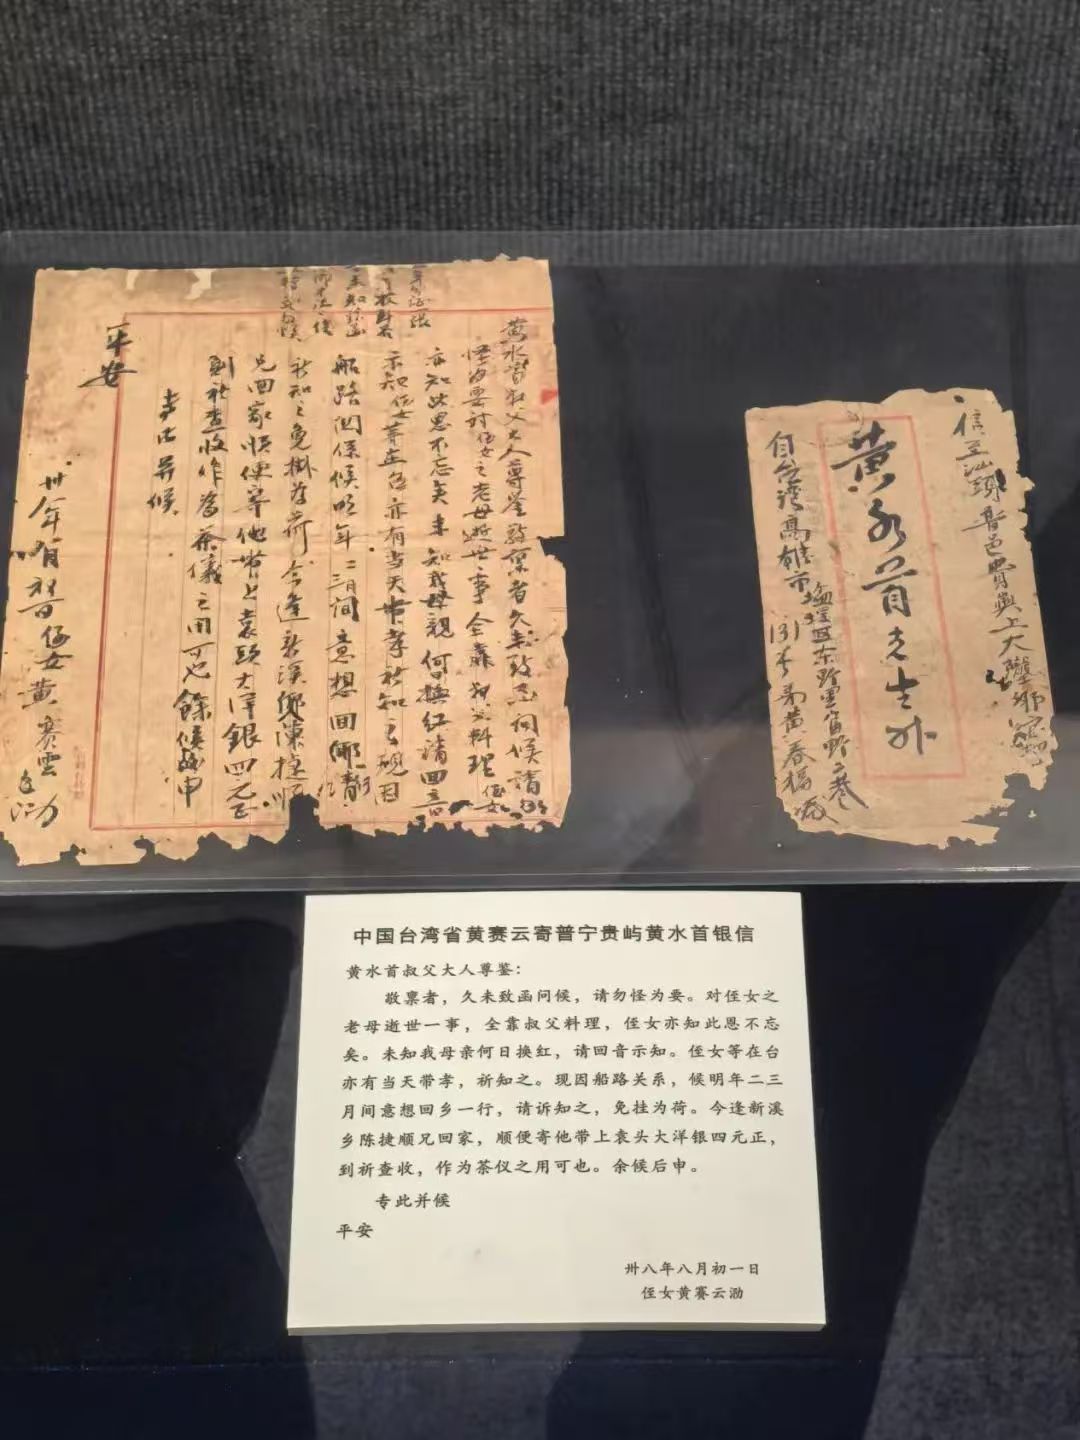 黄水首叔父大人尊鉴敬禀者久未致函问候请勿
怪为要对侄女之老母逝世一事全靠叔父料理侄女
亦知此恩不忘矣未知我母親何日换红请回音
示知侄女等在台亦有当天带孝祈知之现因
船路関係候明年二三月间意想回鄉一行請
祈知之免掛為荷今逢新溪鄉陳捷順
兄回家順便寄他带上袁頭大洋銀四元正
到祈查收作為茶儀之用可也餘候後申
專此并候
平安
卅八年八月初一日侄女黄赛雲
信至汕頭普邑貴嶼上大
黄水首先生外
自台灣高雄市塩埕區
131号弟黄春福
中国台湾省黄赛云寄普宁贵屿黄水首银信
黄水首叔父大人尊鉴：
敬禀者，久未致函问候，请勿怪为要。对侄女之
老母逝世一事，全靠叔父料理，侄女亦知此恩不忘
矣。未知我母亲何日换红，请回音示知。侄女等在台
亦有当天带孝，祈知之。现因船路关系，候明年二三
月间意想回乡一行，请诉知之，免挂为荷。今逢新溪
乡陈捷顺兄回家，顺便寄他带上袁头大洋银四元正，
到祈查收，作为茶仪之用可也。余候后申。
专此并候
平安
卅八年八月初一日
侄女黄赛云泐